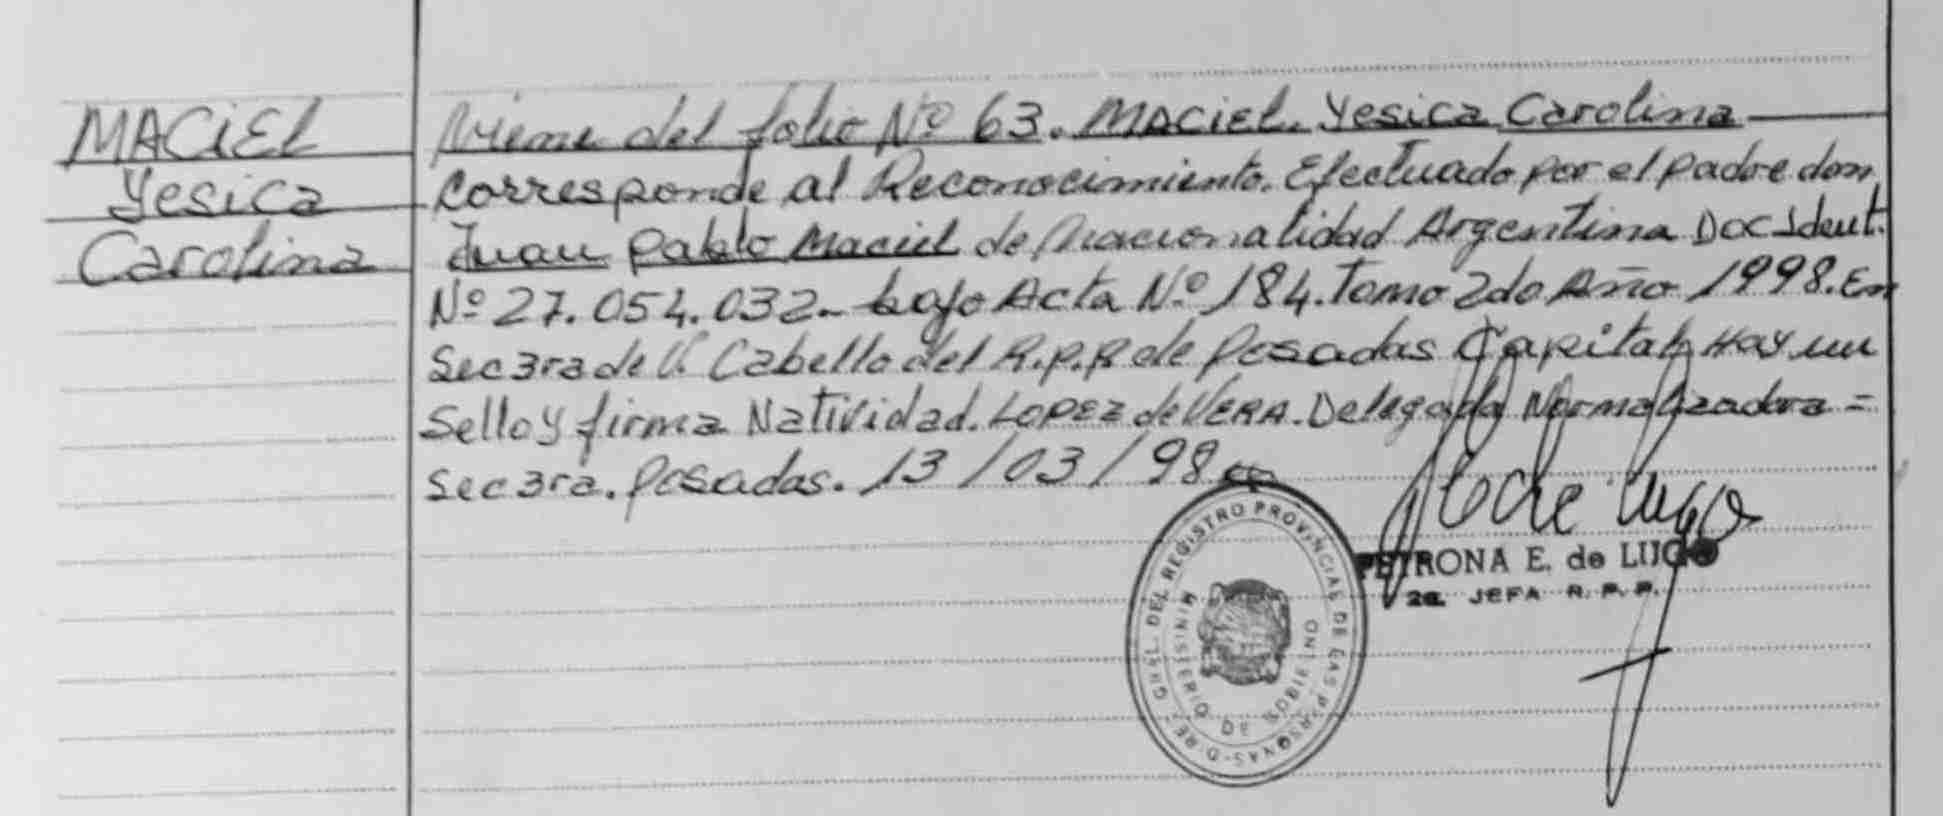 MACiEL
Yesica
Carolina
Viene del folio Nº 63. MACIEL. Yesica Carolina
Corresponde al Reconocimiento. Efectuado por el padre don
Juan Pablo Maciel de Nacionalidad Argentina Doc Ident.
Nº 27.054.032.- bajo Acta Nº 184. Tomo 2do Año 1998. En
Sec 3ra de V. Cabello del R.P.P. de Posadas Capital. Hay un
Sello y firma Natividad. LOPEZ de VERA. Delegada Normalizadora =
Sec 3ra. Posadas. 13/03/98
DEL REGISTRO PROVINCIAL DE LAS PERSONAS
MINISTERIO DE GOBIERNO
PETRONA E. de LUGO
2a. JEFA R. P. P.